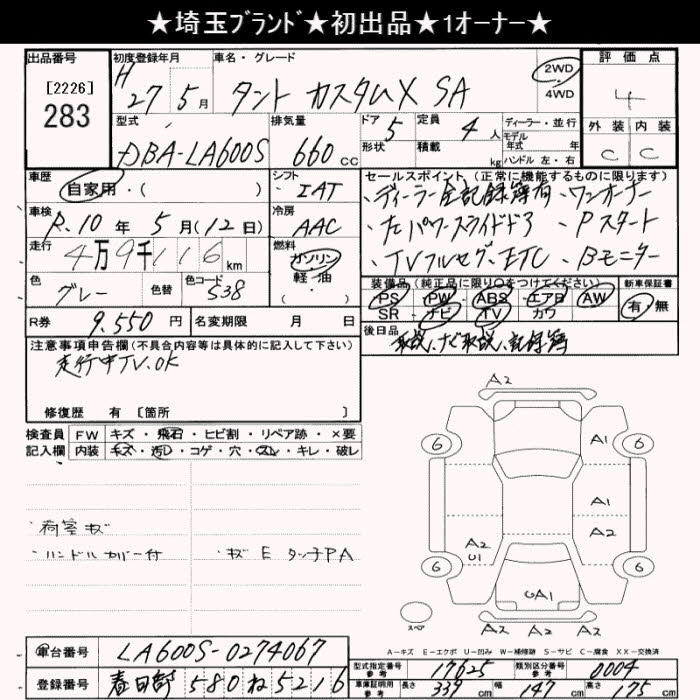 ★埼玉ブランド★初出品★1オーナー★
出品番号 初度登録年月 車名・グレード 2WD 4WD 評価点
[2226] 283 H 27年 5月 タント カスタムX SA 4
型式 排気量 ドア 5 定員 4人 ディーラー・並行 外装 内装
モデル年式 年式
DBA-LA600S 660cc 形状 積載 kg ハンドル 左・右 C C
車歴 シフト セールスポイント(正常に機能するものに限ります)
自家用・( ) IAT ・ディーラー全記録簿有 ・ワンオーナー
車検 冷房
R.10年 5月(12日) AAC ・左パワースライドドア ・Pスタート
走行 燃料
4万9千116km ガソリン 軽・油 ( ) ・TVフルセグ、ETC ・Bモニター
色 色替 色コード 装備品(純正品に限り○をつけてください) 新車保証書
グレー 538 PS PW ABS エアB AW 有・無
SR ナビ TV カワ
R券 9.550円 名変期限 月 日 後日品
取説、ナビ取説、記録簿
注意事項申告欄(不具合内容等は具体的に記入して下さい)
走行中TV.OK
修復歴 有 [箇所 ]
検査員 FW キズ・飛石・ヒビ割・リペア跡・×要
記入欄 内装 キズ・汚れ・コゲ・穴・スレ・キレ・破レ
・荷室キズ
・ハンドルカバー付 ・キズ E タッチPA
A2
6 6
A1
A1
A2 A2
U1
6 6
UA1
スペア A2 A2 A2
A-キズ E-エクボ U-凹み W-補修跡 S-サビ C-腐食 XX-交換済
車台番号 LA600S-0274067 型式指定番号 参考 17625 類別区分番号 参考 0004
登録番号 春日部 580 ね 5216 車庫証明用 参考 長さ 339cm 幅 147cm 高さ 175cm